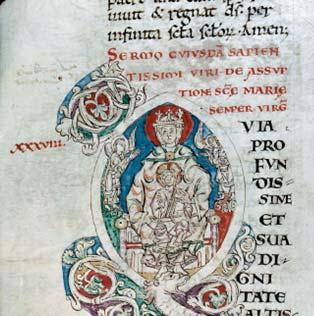 uiuit & regnat ds. per
infinita scla sclor. Amen;
SERMO CVIVSDA SAPIEN
TISSIMI VIRI. DE ASSVP
TIONE SCE MARIE
SEMPER VIRG
XXXVIII.
VIA
PRO
FVN
DIS
SINE
ET
SVA
DI
GNI
TATE
ALTIS